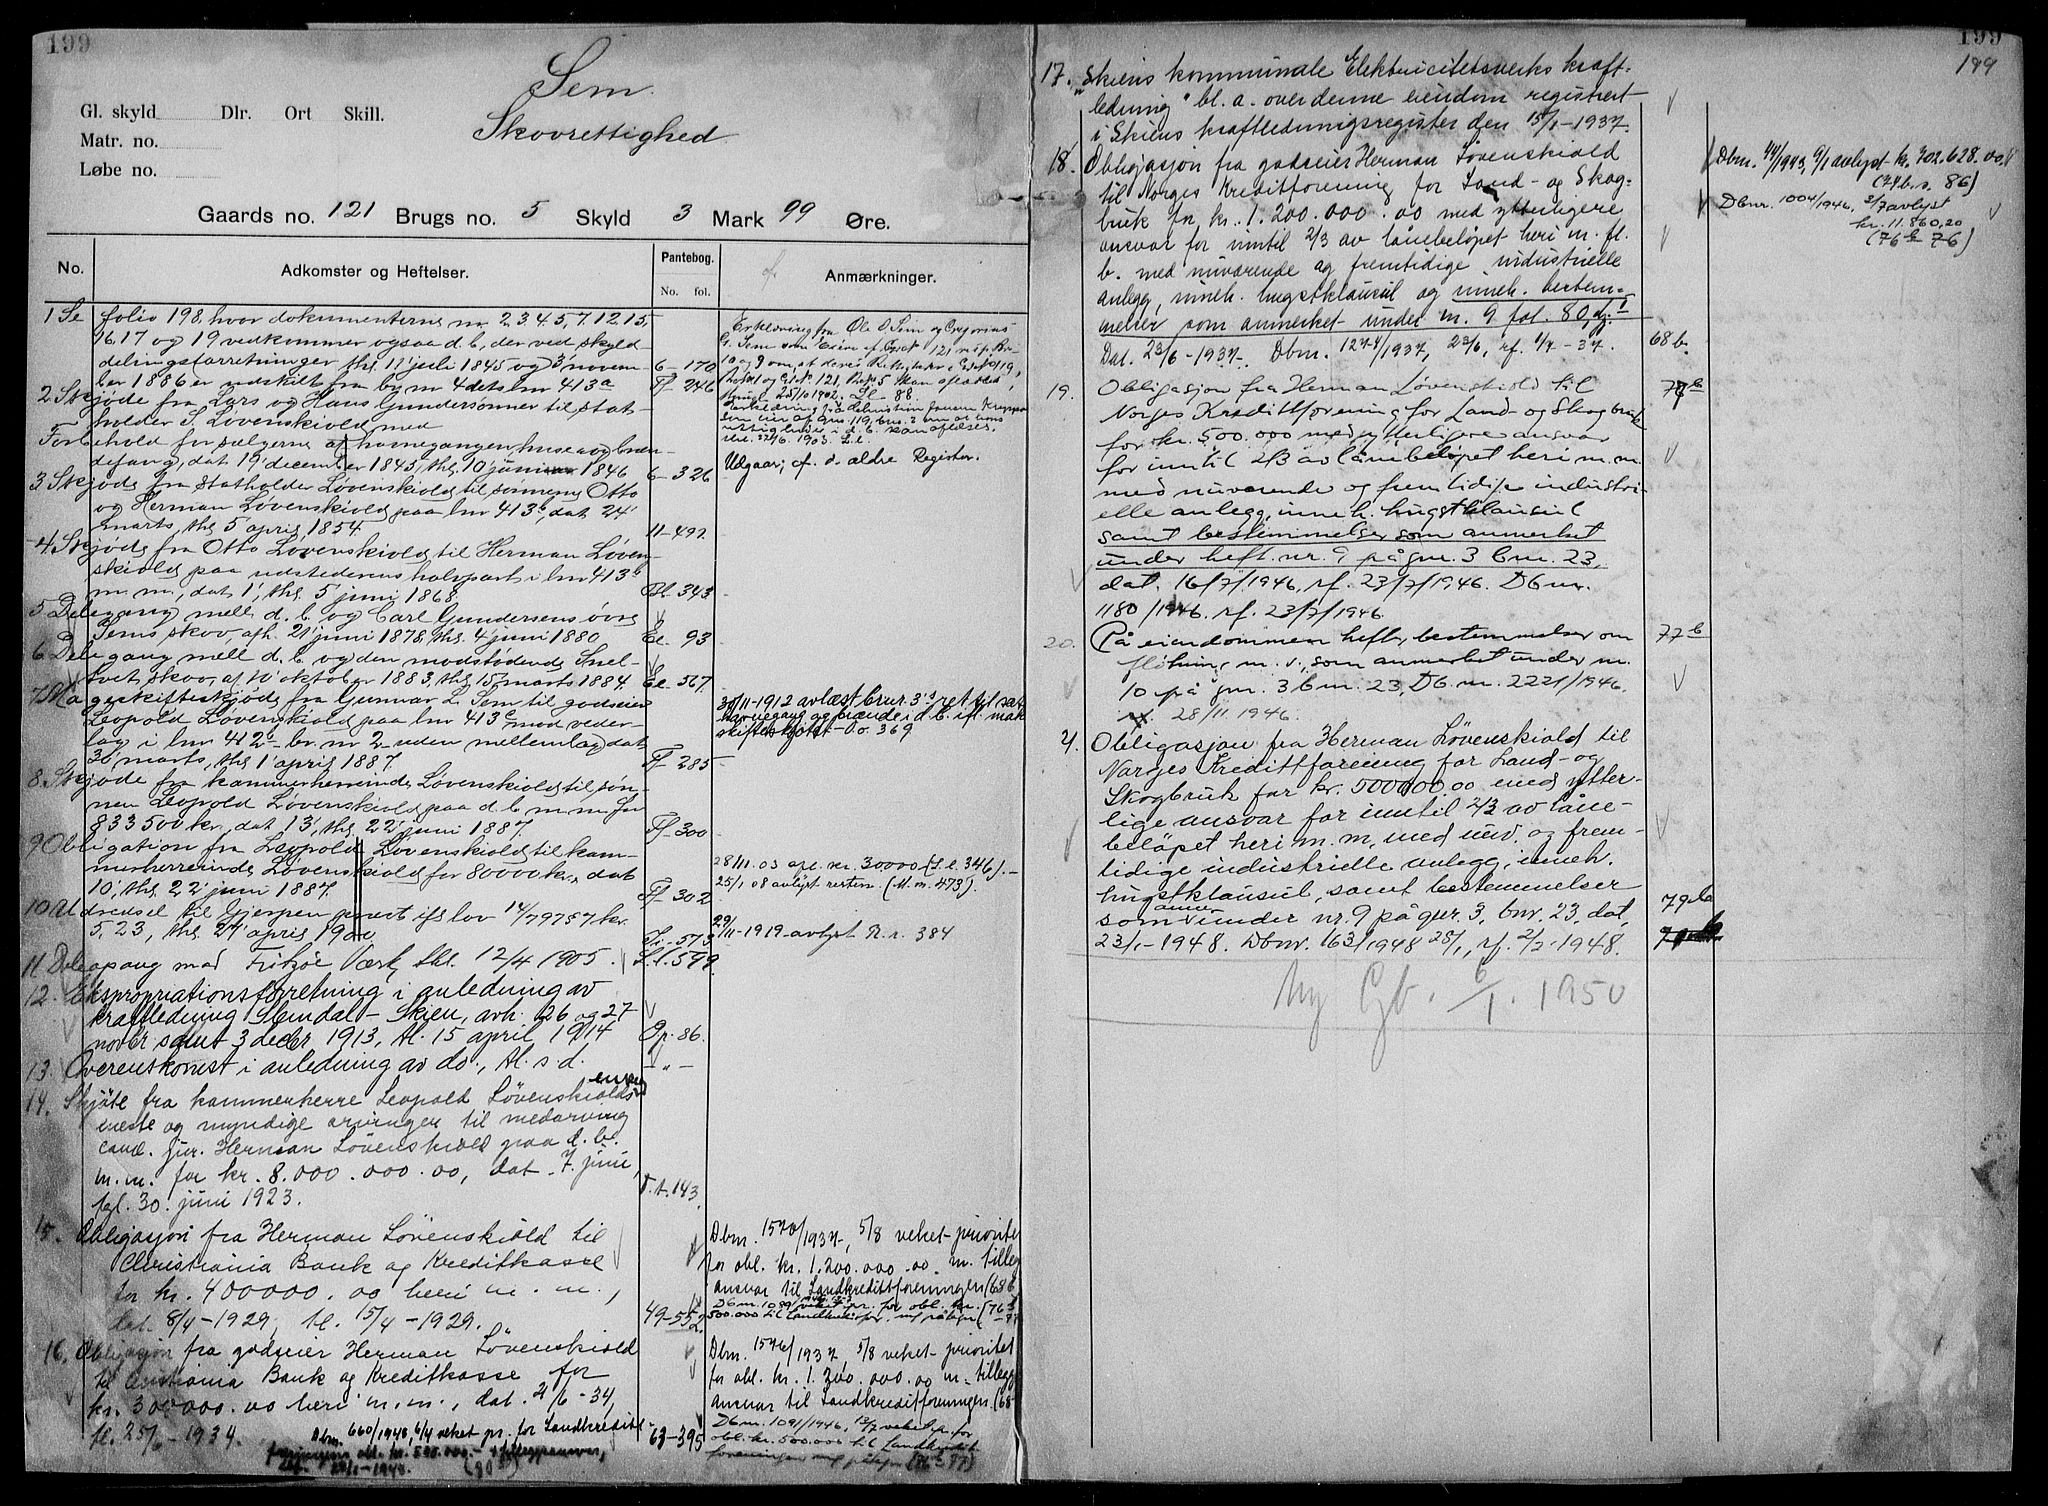 199
Sem.
Skovrettighed
Gl. skyld Dlr. Ort Skill.
Matr. no.
Løbe no.
Gaards no. 121 Brugs no. 5 Skyld 3 Mark 99 Øre.
No. Adkomster og Heftelser. Pantebog. No. fol. Anmærkninger.
1 Se folio 198, hvor dokumenterne nr 2, 3, 4, 5, 7, 12, 15,
16, 17 og 19 vedkommer ogsaa d. b., der ved skyld-
delingsforretninger thl. 11 juli 1845 og 3 novem- 6-170
ber 1886 er udskilt fra br nr 4 dets lnr 413a Ff 246
2 Skjøde fra Lars og Hans Gundersønner til stat-
holder S. Løvenskiold med
Forbehold for sælgerne af havnegangen, huse og bræn-
defang, dat 19 december 1845, thl. 10 januar 1846 6-326
3 Skjøde fra statholder Løvenskiold til sønnerne Otto
og Herman Løvenskiold paa lnr 413b, dat 24
marts, thl 5 april 1854. 11-499
4 Skjøde fra Otto Løvenskiold til Herman Løven-
skiold paa udstederens halvpart i lnr 413b
m. m., dat 1, thl. 5 juni 1868. Bl. 343
5 Delegang mell d. b. og Carl Gundersens øvre
Sems skov, afh. 21 juni 1878, thl. 4 juni 1880 Cc 93
6 Delegang mell d. b. og den modstødende Snel-
tvet, skov, af 10 oktober 1883, thl. 15 marts 1884. Ee 567.
7 Mageskifteskjøde fra Gunnar L. Sem til godseier
Leopold Løvenskiold paa lnr 413c mod veder-
lag i lnr 412b br. nr 2 uden mellemlag dat
30 marts, thl 1 april 1887. Ff 285
8. Skjøde fra kammerherreinde Løvenskiold til søn-
nen Leopold Løvenskiold paa d. b. m m for
833 500 kr, dat 13, thl. 22 juni 1887. Ff 300
9 Obligation fra Leopold Løvenskiold til kam-
merherreinde Løvenskiold for 80000 kr, dat
10, thl. 22 juni 1887. Ff 302
10 Udredsel til Gjerpen prest ifl lov 14/7 9757 kr.
5,23, thl. 27 april 1900
11 Delegang med Fritzøe Værk, thl. 12/4 1905. L.l. 599.
12. Ekspropriationsforretning i anledning av
kraftledning Slemdal - Skien, avh. 26 og 27
novbr samt 3 decbr 1913, tl. 15 april 1914 Op. 86.
13. Overenskomst i anledning av do., tl. s. d. - " -
14. Skjøte fra kammerherre Leopold Løvenskiolds enke
eneste og myndige arvinger til medarving
cand. jur. Herman Løvenskiold paa d. b.
m. m. for kr. 8.000.000.00, dat. 7. juni,
tgl. 30. juni 1923. T.t. 143
15. Obligasjon fra Herman Løvenskiold til
Christiania Bank og Kreditkasse
for kr. 400000.00 heri m. m.,
dat. 8/4 - 1929, tl. 15/4 - 1929. 49-552.
16. Obligasjon fra godseier Herman Løvenskiold
til Christiania Bank og Kreditkasse for
kr. 300000.00 heri m. m., dat. 21/6 - 34,
tl. 25/6 - 1934. 63-395
Dbnr. 660/1948 6/4 veket pr. for Landkreditt-
Erklæring fra Ole O Sem og Gregorius
G. Sem som Eiere af
Udgaar; cf. d. ældre Register.
30/11-1912 avlæst brnr 3's ret til sæt
havnegang og brænde i d. b. ifl. mak
skifteskjøte O.o. 369
28/11. 03 afl. kr. 30000 (L.l. 346).-
25/1 08 avlyst resten. (M. m. 473).
29/11-1919 avlyst R. r. 384
Dbnr. 1570/1937, 5/8 veket prioritet
for obl. kr. 1.200.000.00 m. tillegg
ansvar til Landkredittforeningen (68 b
Dbnr. 1576/1937 5/8 veket prioritet
for obl. kr. 1.200.000.00 m. tillegg
ansvar til Landkreditforeningen. (68-
Dbnr. 1091/1946, 12/7 veket pr. for
obl. kr. 500.000 til Landkreditt
199
199
17. "Skiens kommunale Elektricitetsverks kraft-
ledning" bl. a. over denne eiendom registrert
i Skiens kraftledningsregister den 15/1-1937.
18. Obligasjon fra godseier Herman Løvenskiold
til Norges Kreditforening for Land- og Skog-
bruk for kr. 1.200.000.00 med ytterligere
ansvar for inntil 2/3 av lånebeløpet heri m. fl.
b. med nuværende og fremtidige industrielle
anlegg, inneh. hugstklausul og inneh. bestem-
melser som anmerket under nr. 9 fol. 80, dj. I
Dat. 23/6-1937. Dbnr. 1274/1937, 23/6, rf. 1/7 - 37. 68 b.
19. Obligasjon fra Herman Løvenskiold til 76 b
Norges Kredittforening for Land- og Skogbruk
for kr. 500.000 med ytterligere ansvar
for inntil 2/3 av lånebeløpet heri m. m.
med nuværende og fremtidige industri-
elle anlegg, inneh. hugstklausul
samt bestemmelser som anmerket
under heft. nr. 9 på gnr. 3 bnr. 23,
dat. 16/7/1946, rf. 23/7/1946. Dbnr.
1180/1946, rf. 23/7/1946.
20. På eiendommen hefter bestemmelser om 77 b
fløtning m. v., som anmerket under nr.
10 på gnr. 3 bnr. 23, Db. nr. 2221/1946.
rf. 28/11 1946.
21. Obligasjon fra Herman Løvenskiold til
Norges Kredittforening for Land- og
Skogbruk for kr. 500000.00 med ytter-
lige ansvar for inntil 2/3 av låne-
beløpet heri m. m, med nuv. og frem-
tidige industrielle anlegg, inneh.
hugstklausul, samt bestemmelser
som anmer under nr. 9 på gnr. 3, bnr. 23, dat. 79 b
23/1-1948. Dbnr. 163/1948 28/1, rf. 2/2-1948.
Ny Gb. 6/1. 1950
Dbnr. 44/1943, 6/1 avlyst kr. 302.628.00.
(74 b. s. 86)
Dbnr. 1004/1946, 2/7 avlyst
kr. 11.860,20
(76 b 76)